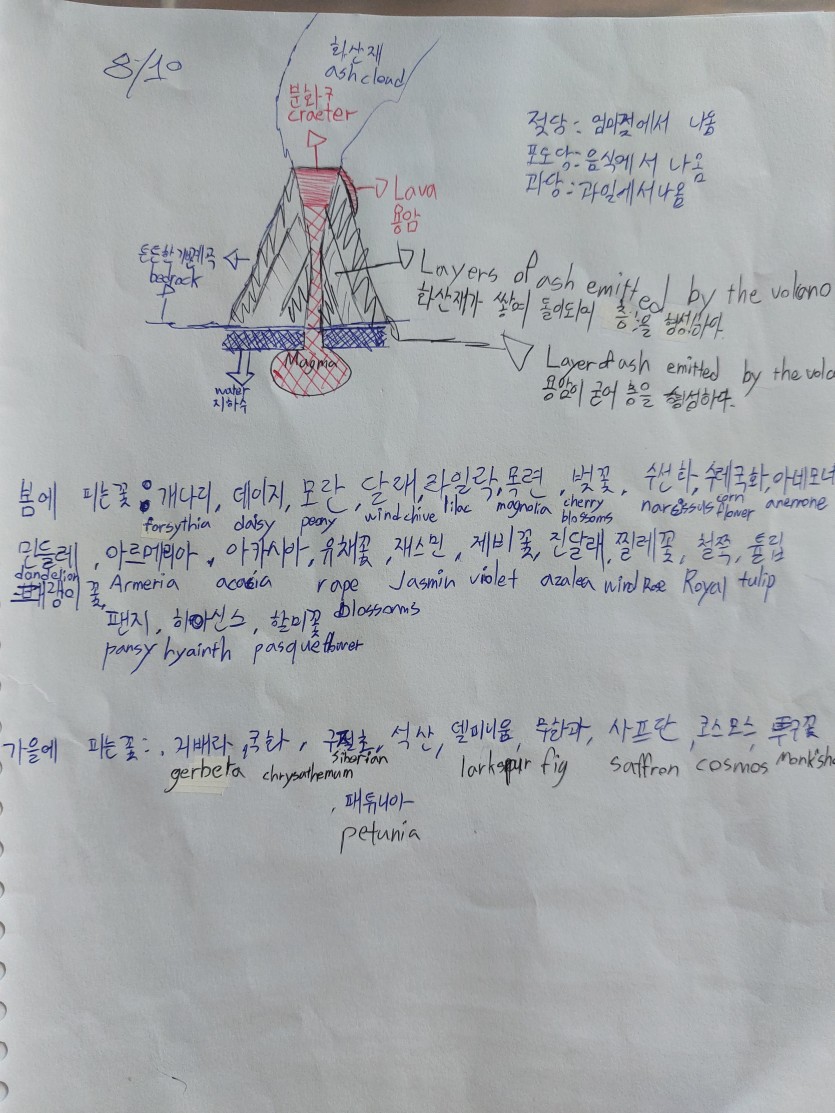 8/10
화산재
ash cloud
분화구
craeter
Lava
용암
젖당 : 엄마젖에서 나옴
포도당 : 음식에서 나옴
과당 : 과일에서 나옴
bedrock
Layers of ash emitted by the volcano
화산재가 쌓여 돌이되어 층을 형성하다.
Layer of ash emitted by the volca
용암이 굳어 층을 형성하다.
Magma
water
지하수
봄에 피는꽃 : 개나리, 데이지, 모란, 달래, 라일락, 목련, 벚꽃, 수선화, 수레국화, 아네모네
forsythia daisy peony wind chive lilac magnolia cherry blossoms narsissus corn flower anemone
민들레, 아르메리아, 아카시아, 유채꽃, 재스민, 제비꽃, 진달래, 찔레꽃, 철쭉, 튤립
dandelion Armeria acacia rape blossorms Jasmin violet azalea wind Rose Royal tulip
패랭이 꽃, 팬지, 히아신스, 할미꽃
pansy hyainth pasqueflower
가을에 피는꽃 : 거베라, 국화, 구절초, 석산, 델피니움, 무화과, 사프란, 코스모스, 투구꽃
gerbera chrysathemum siborian larkspur fig saffron cosmos Monk'sho
, 패튜니아
petunia